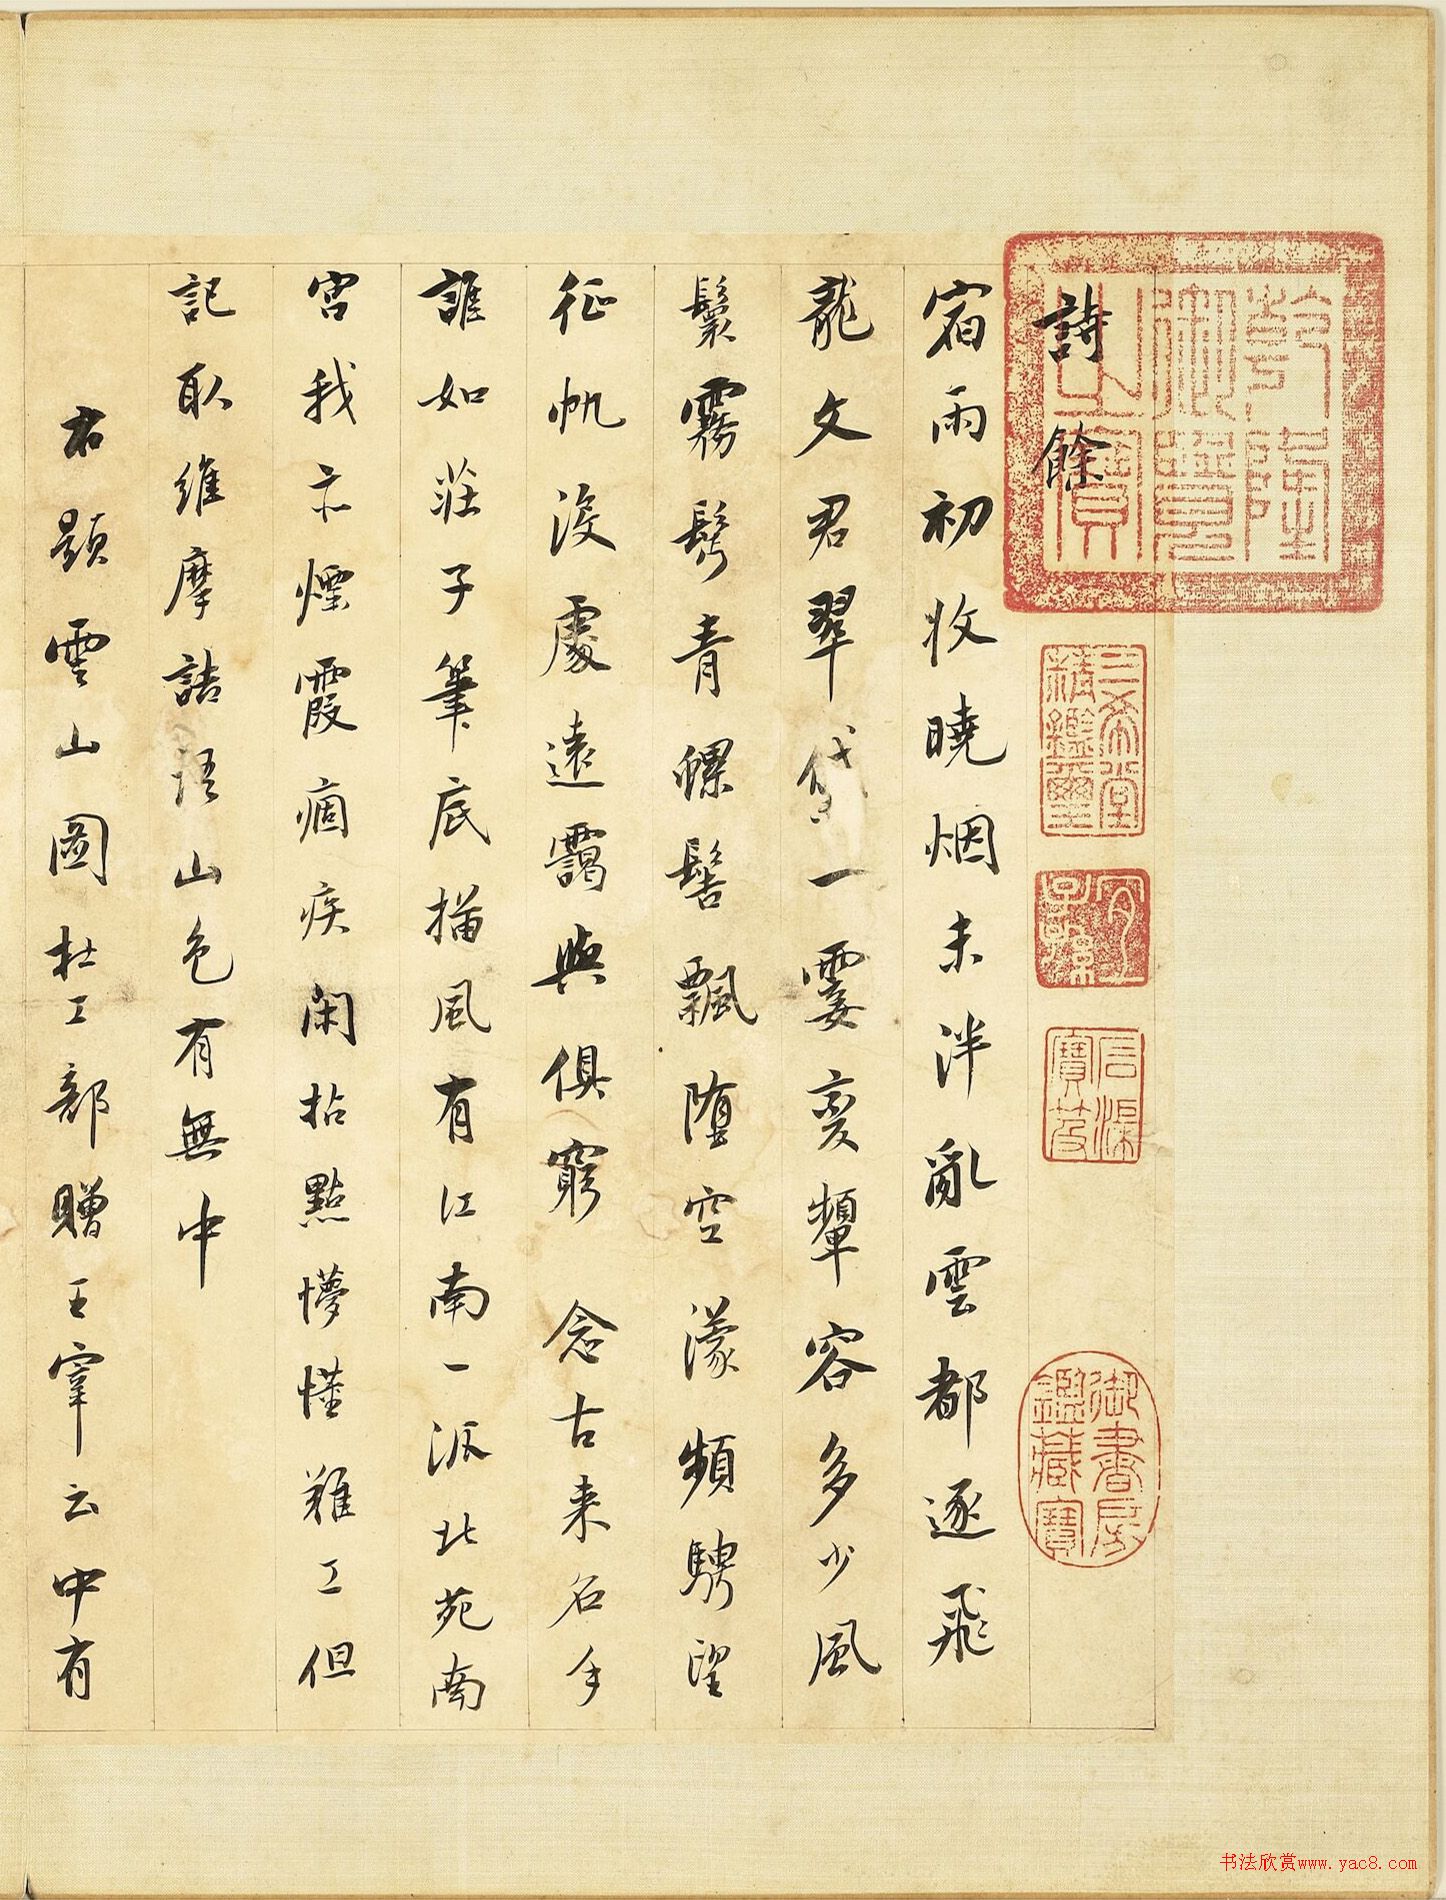 詩餘
宿雨初收曉烟未泮亂雲都逐飛
龍文君翠黛一霎變顰容多少風
鬟霧鬢青螺髻飄墮空濛頻騁望
征帆沒處遠靄與俱窮 念古来名手
誰如莊子筆底描風有江南一派北苑南
宮我亦煙霞痼疾閑拈點懞憧難工但
記取維摩詰語山色有無中
右題雲山圖杜工部贈王宰云中有
乾隆御覽之寶
三希堂精鑑璽
宜子孫
石渠寶笈
御書房鑑藏寶
书法欣赏www.yac8.com